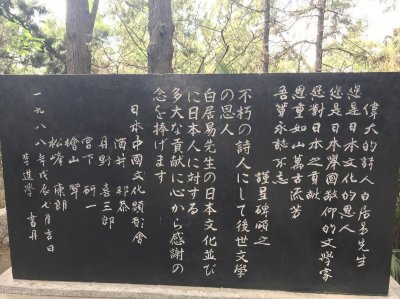 偉大的詩人白居易先生
您是日本文化的恩人
您是日本舉國敬仰的文學家
您對日本之貢獻
恩重如山萬古流芳
吾輩永誌不忘
謹呈碑頌之
不朽の詩人にして後世文學
の恩人
白居易先生の日本文化並び
に日本人に対する
多大な貢献に心から感謝の
念を捧げます
日本中國文化顕彰會
酒井 邦恭
丹野 喜三郎
宮下 研一
檜山 翠
松峰 康朗
李進學 書丹
一九八八年戊辰七月吉日